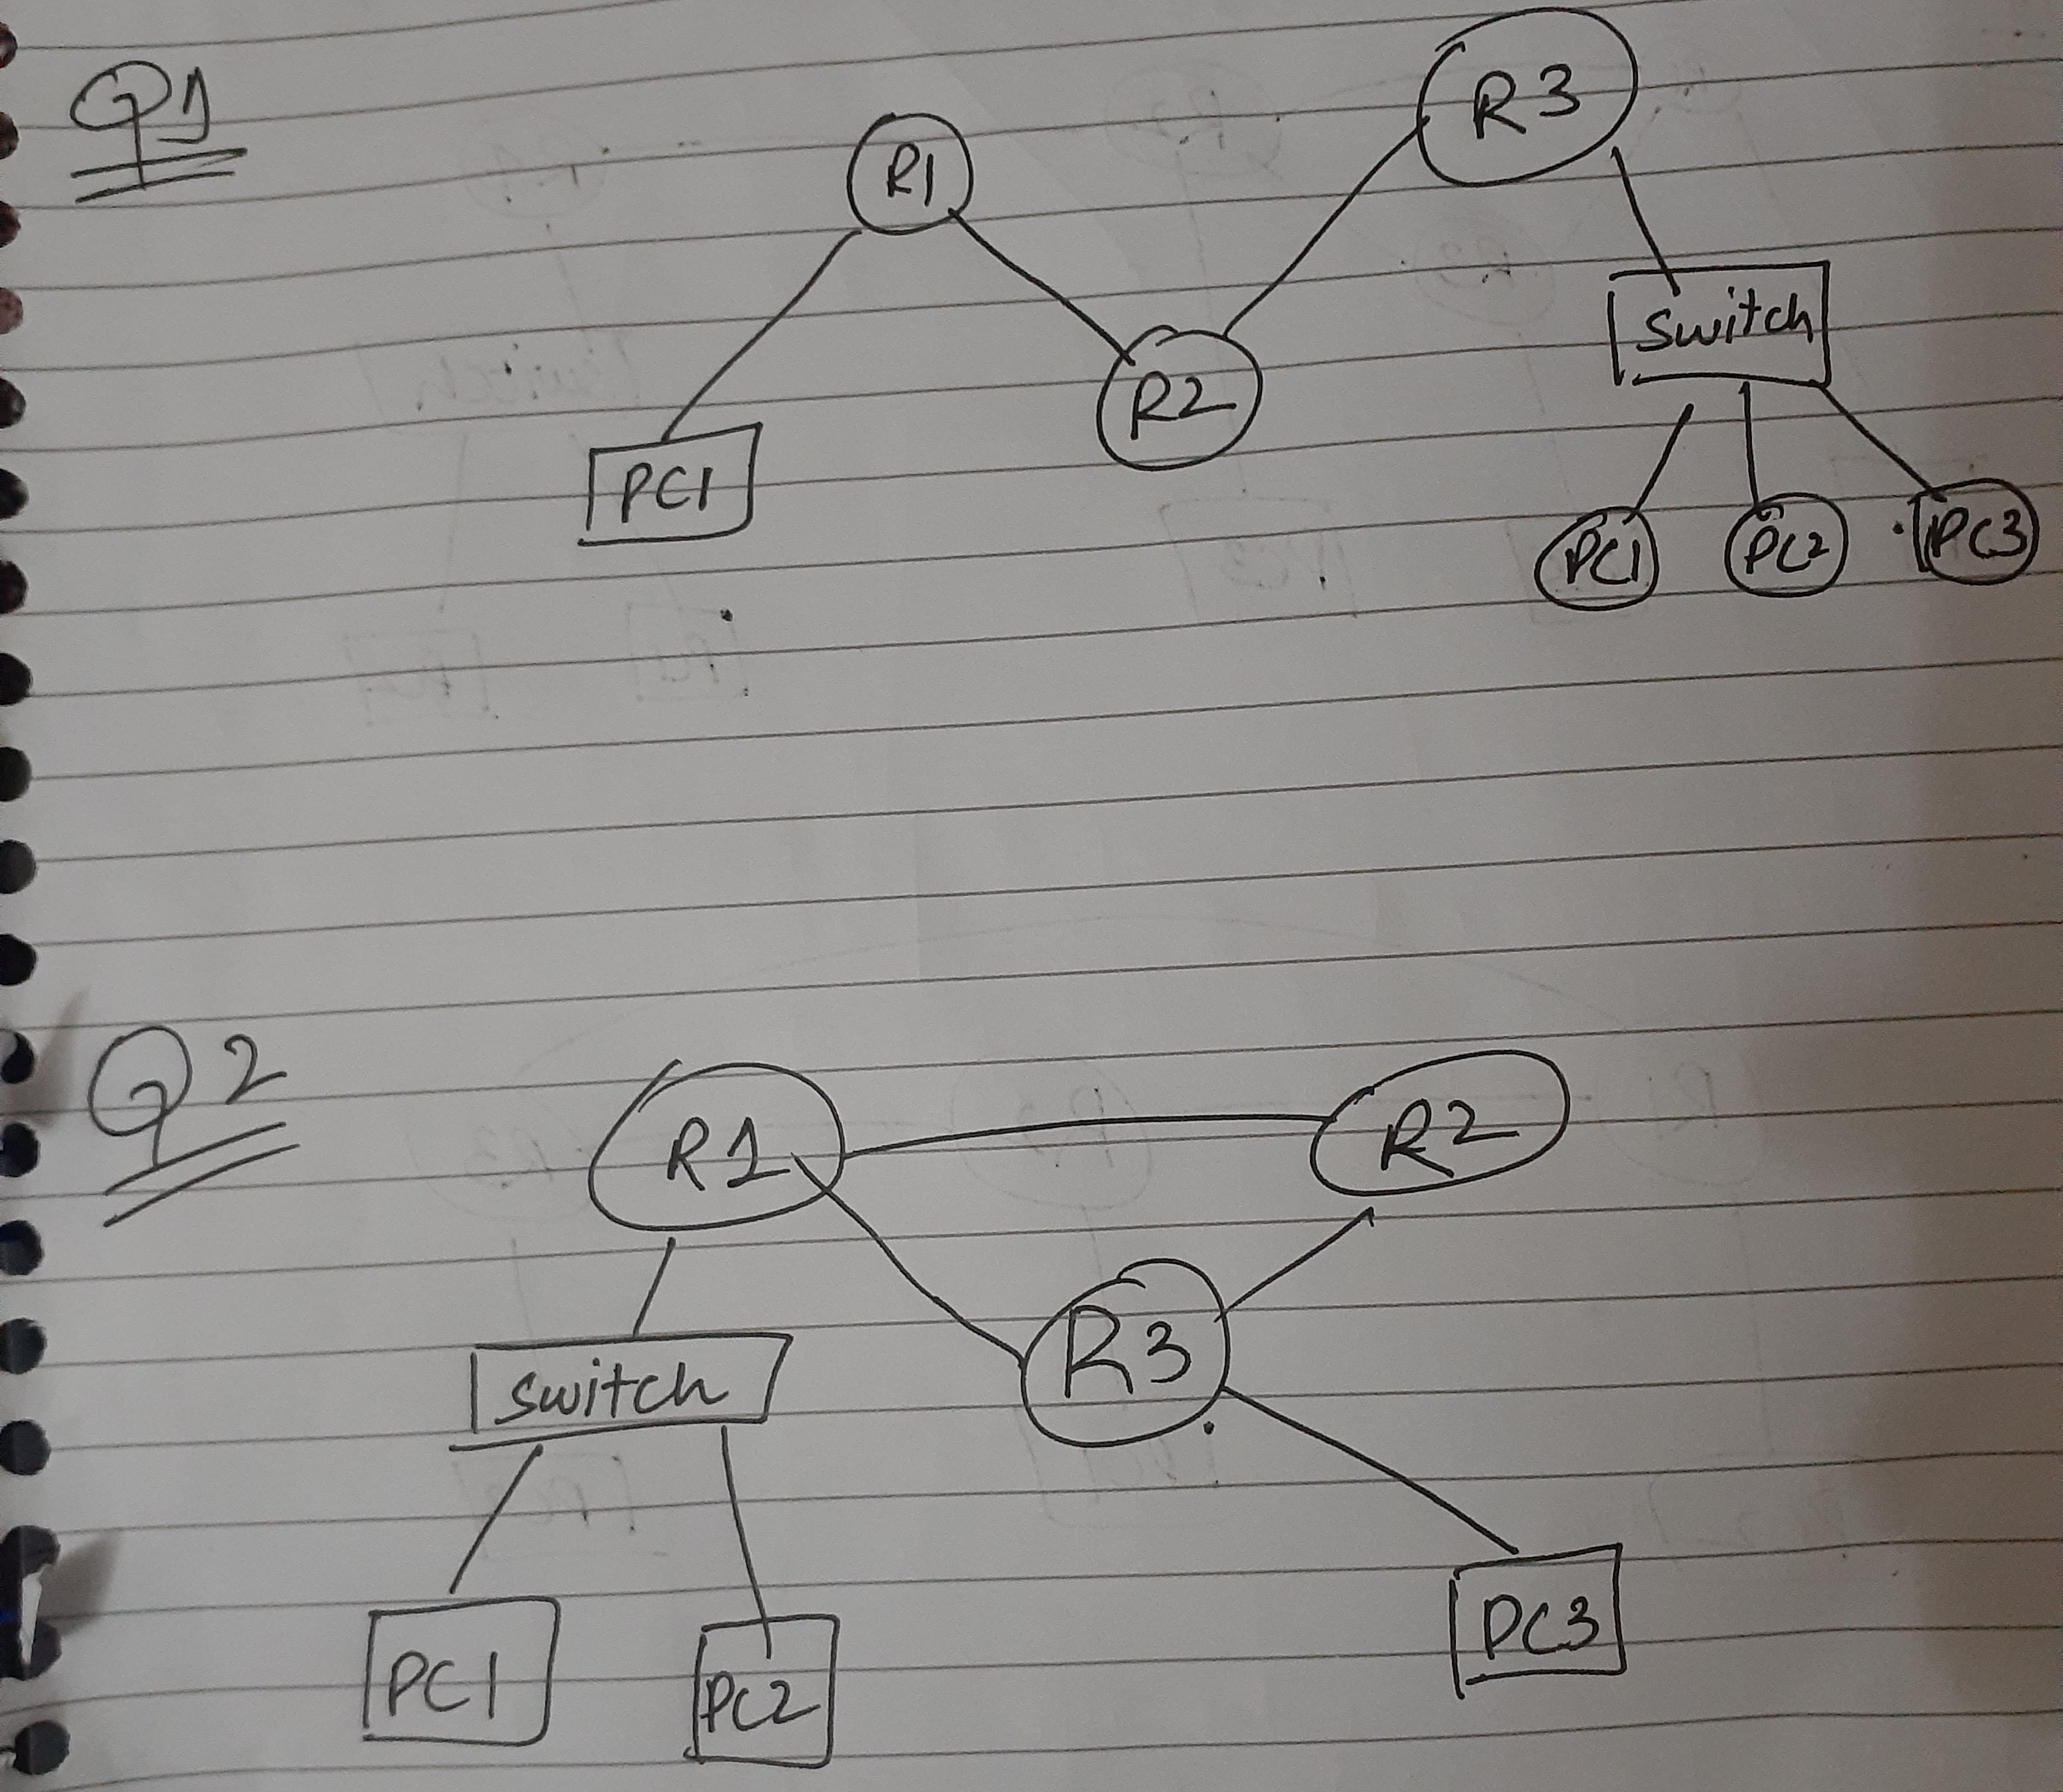 Q1
R1
R3
R2
Switch
PC1
PC1 PC2 PC3
Q2
R1
R2
R3
switch
PC1
PC2
PC3